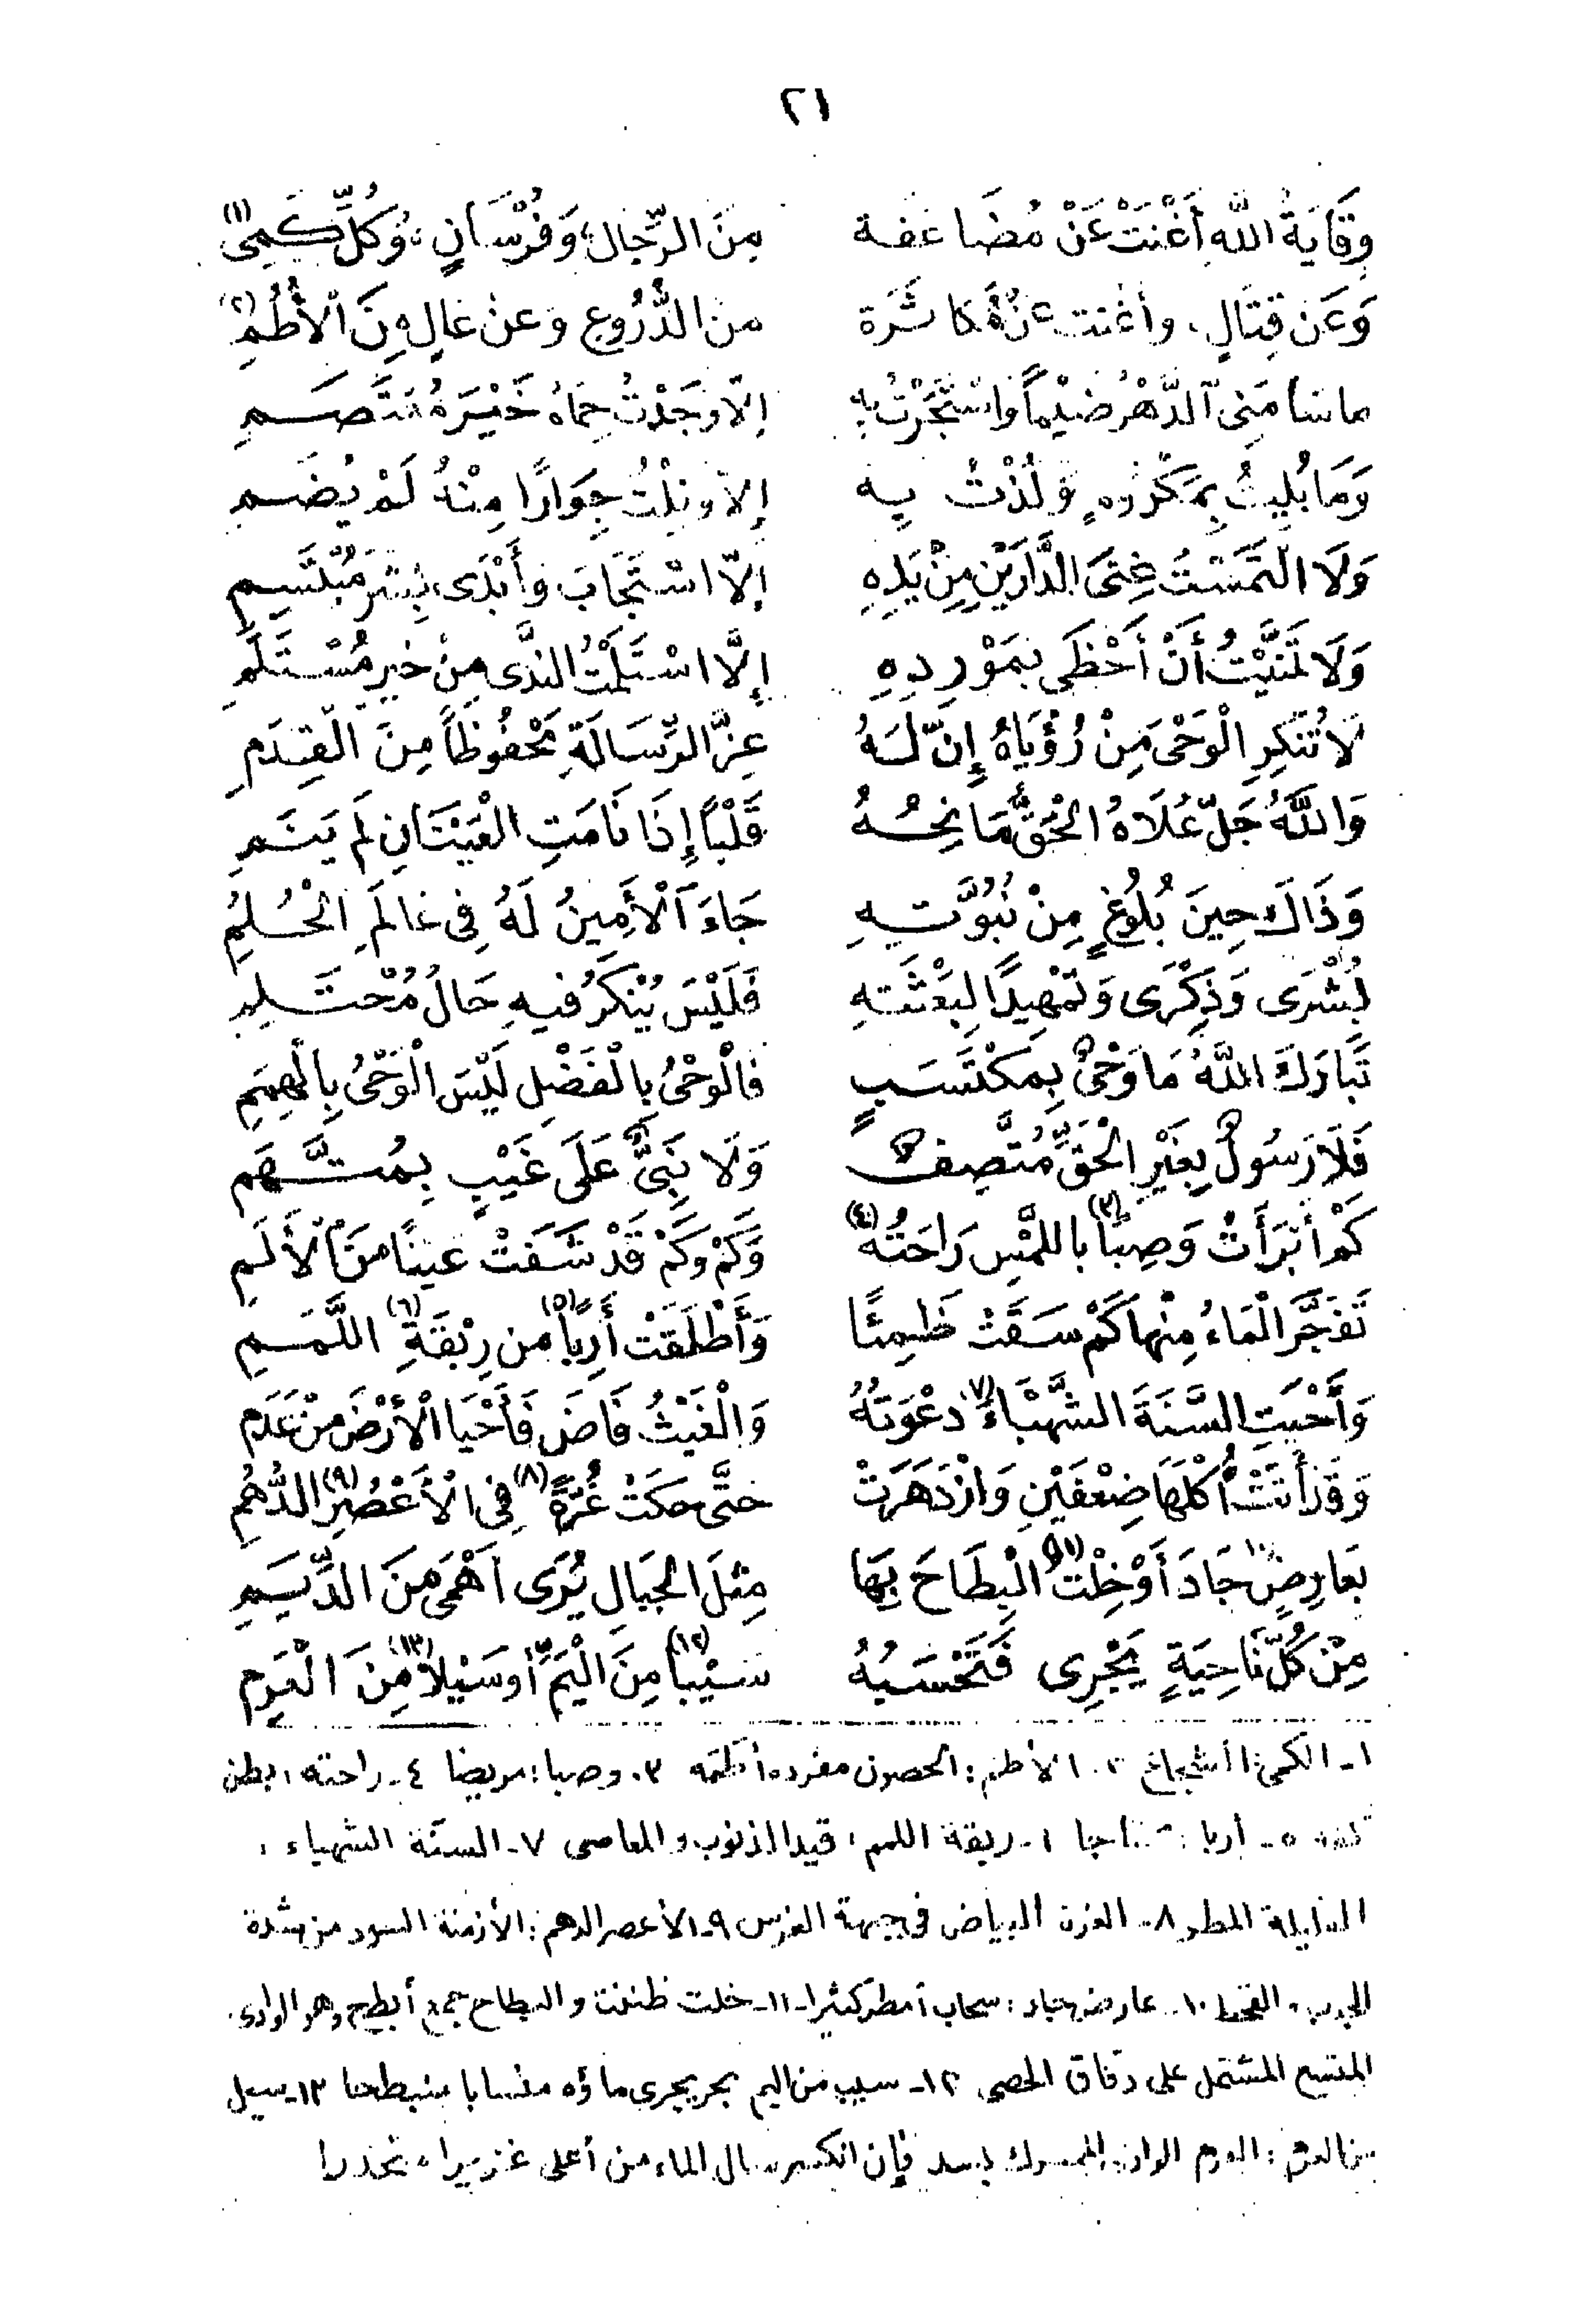 ٢١
وِقَايَةُ اللهِ أَغْنَتْ عَنْ مُضَاعَفة مِنَ الرِّجَالِ، وَفُرْسَانٍ، وَكُلِّ كَمِىّ (١)
وَعَن قِتَالٍ، وأغنت عن مُكاثَرة من الدُّرُوعِ وعن عَالٍ مِنَ الْأُطُمِ (٢)
ما سَامَنِى الدَّهْرُ ضَيْماً وَاسْتَجَرْتُ بِهِ إلاّ وَجَدْتُ حِمَاهُ خَيْرَ مُعْتَصَمِ
وَمَا بُلِيتُ بِمَكْرُوهٍ وَلُذْتُ بِهِ إلاّ ونِلْتُ جِوَارًا مِنْهُ لَمْ يُضَمِ
وَلَا الْتَمَسْتُ غِنَى الدَّارَيْنِ مِنْ يَدِهِ إلاّ اسْتَجَابَ وَأَبْدَى بِشْرَ مُبْتَسِمِ
وَلَا تَمَنَّيْتُ أَنْ أَحْظَى بِمَوْرِدِهِ إِلَّا اسْتَلَمْتُ النَّدَى مِنْ خَيرِ مُسْتَلَمِ
لَا تُنْكِرِ الْوَحْىَ مِنْ رُؤْيَاهُ إِنّ لَهُ عِزَّ الرِّسَالَةِ مَحْفُوظاً مِنَ الْقِدَمِ
وَاللَّهُ جَلّ عُلَاهُ الْحَقُّ مَانِحُهُ قَلْباً إِذَا نَامَتِ الْعَيْنَانِ لَم يَنَمِ
وَذَاكَ حِينَ بُلُوغٍ مِنْ نُبُوَّتِهِ جَاءَ الْأَمِينُ لَهُ فِى عَالَمِ الْحُلُمِ
بُشْرَى وَذِكْرَى وَتَمْهِيدًا لِبَعْثَتِهِ فَلَيْسَ يُنْكَرُ فيهِ حَالُ مُحْتَلِمِ
تَبَارَكَ اللَّهُ مَا وَحْىٌ بِمكْتَسَبٍ فَالْوَحْىُ بالْفَضْلِ لَيْسَ الْوَحْىُ بِالْهِمَمِ
فَلَا رَسُولٌ بِغَيْرِ الْحَقِّ مُتَّصِفٌ وَلَا نَبِىٌّ عَلَى غَيْبٍ بِمُتَّهَمِ
كَمْ أَبْرَأَتْ وَصِباً (٣) باللمْسِ رَاحَتُهُ (٤) وَكَمْ وَكَمْ قَدْ شَفَتْ عَينًا مِنَ الْأَلَمِ
تَفَجَّرَ الْمَاءُ مِنْها كَمْ سَقَتْ ظَمِئًا وَأَطْلَقَتْ أَرِباً (٥) من رِبْقَةِ (٦) اللَّمَمِ
وَأَحْيَتِ السَّنَةَ الشَّهْبَاءَ (٧) دعْوَتُهُ وَالْغَيْثُ فَاضَ فَأَحْيَا الْأَرْضَ مِنْ عَدَمِ
وَقَدْ أَتَتْ أُكْلَهَا ضِعْفَيْنِ وَازْدَهَرَتْ حتَّى حكَتْ غُرَّةً (٨) فِى الْأَعْصُرِ (٩) الدُّهُمِ
بَعَارِضٍ ١٠ جَادَ أَوْ خِلْتُ (١١) الْبِطَاحَ بِهَا مِثلَ الجِبَالِ يُرَى أَهْمَى مِنَ الدِّيَمِ
مِنْ كُلِّ نَاحِيَةٍ يَجْرِى فَتَحْسَبُهُ سَيْباً (١٢) مِنَ الْيَمِّ أوسَيْلاً (١٣) مِنَ الْعَرِمِ
١- الكمى: الشجاع ٢- الأطم: الحصون مفرده أطمه ٣- وصبا: مريضا ٤- راحته: بطن
كفه ٥- أربا: ٦- ربقة اللمم: قيد الذنوب والمعاصى ٧- السنة الشهباء:
القليلة المطر ٨- الغرة: البياض فى جبهة الفرس ٩- الأعصر الدهم: الأزمنة السود من شدة
الجدب والقحط ١٠- عارض جاد: سحاب أمطر كثيرا ١١- خلت ظننت والبطاح جمع أبطح وهو الوادى
المتسع المشتمل على دقاق الحصى ١٢- سيب من اليم بحر يجرى ماؤه منسابا منبطحا ١٣- سيل
من العرم: العرم بسد فإن انكسر سال الماء من أعلى غزيرا منحدرا